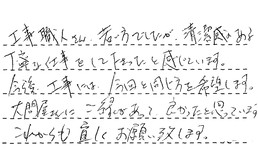 工事職人さん、若い方でしたが、清潔感もあり
丁寧な仕事をして下さったと感じています。
今後、工事には、今回と同じ方を希望します。
大問屋さんにご縁があって良かったと思っています。
これからも宜しくお願い致します。